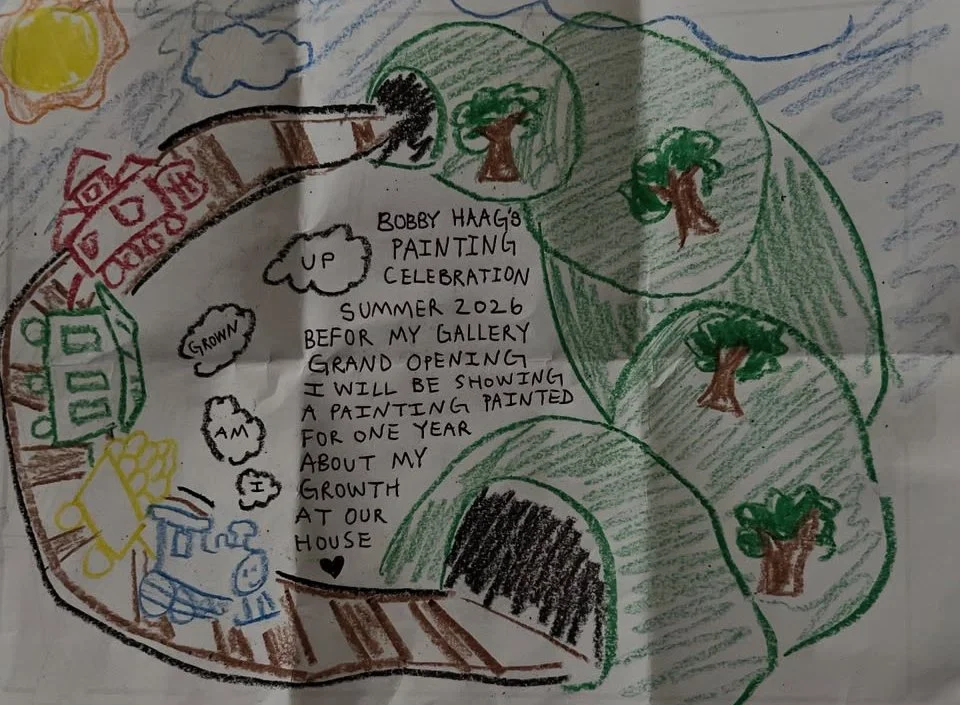 BOBBY HAAG'S
PAINTING
CELEBRATION
SUMMER 2026
BEFOR MY GALLERY
GRAND OPENING
I WILL BE SHOWING
A PAINTING PAINTED
FOR ONE YEAR
ABOUT MY
GROWTH
AT OUR
HOUSE
I
AM
GROWN
UP